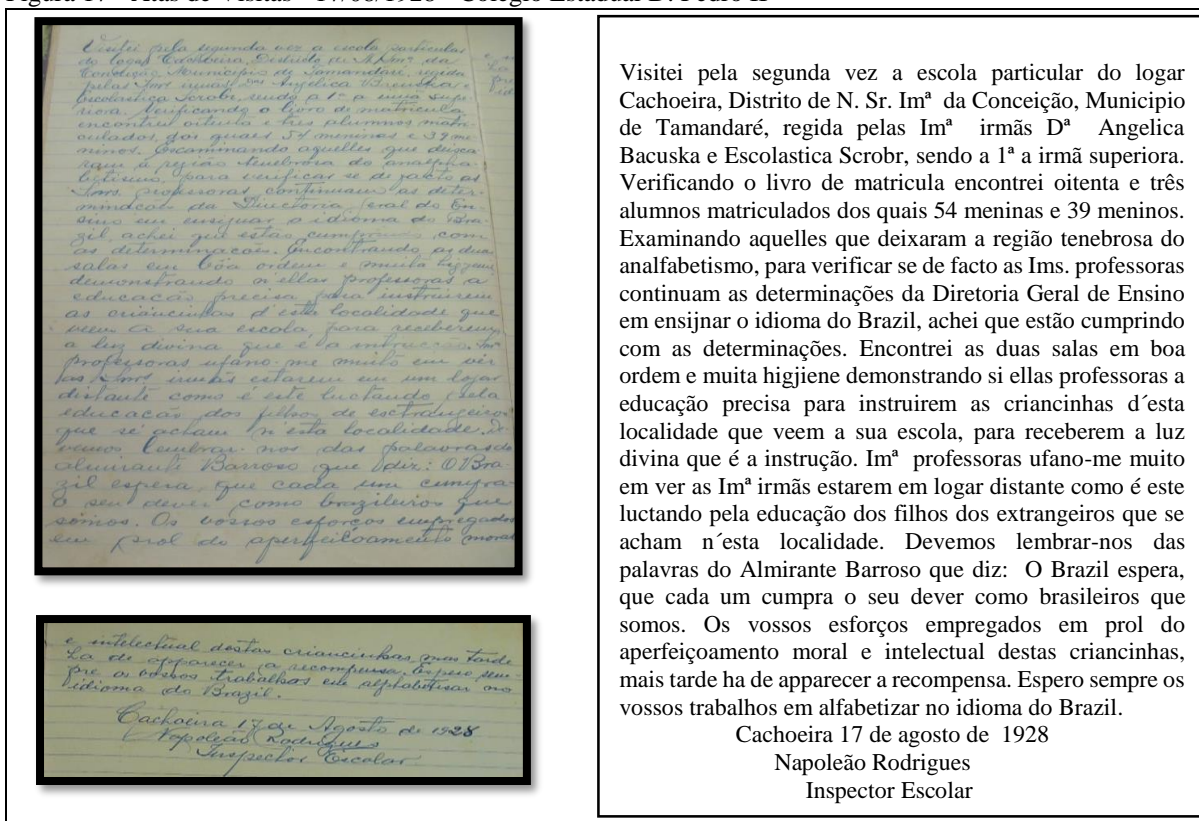 Atas de Visitas - 17/08/1928 - Colégio Estadual D. Pedro II
Visitei pela segunda vez a escola particular
do logar Cachoeira, Districto de N. Senrª da
Conceição, Municipio de Tamandaré, regida
pelas Imas irmãs Das Angelica
Escolastica sendo a 1ª a irmã supe-
riora. Verificando o livro de matricula
encontrei oitenta e tres alumnos matri-
culados, dos quais 54 meninas e 39 me-
ninos. Examinando aquelles que deixa-
ram a região tenebrosa do analpha-
betismo, para verificar se de facto as
Imas. professoras continuam as deter-
minações da Directoria Geral do En-
sino em ensignar o idioma do Bra-
zil, achei que estão cumprindo com
as determinações. Encontrando as duas
salas em bôa ordem e muita
demonstrando ellas professoras a
educacão precisa para instruirem
as criancinhas d'esta localidade que
veem a sua escola, para receberem
a luz divina que é a
professoras ufano-me muito em vir
as Imas irmãs estarem em um logar
distante como é este luctando pela
educacão dos filhos de estrangeiros
que se acham n'esta localidade. De-
vemos lembrar-nos das palavras do
almirante Barroso que diz: O Bra-
zil espera, que cada um cumpra
o seu dever como brazileiros que
somos. Os vossos esforços empregados
em prol do aperfeiçoamento moral
e intelectual destas criancinhas mas tarde
ha de apparecer a recompensa. Espero sem-
pre os vossos trabalhos em alphabetisar no
idioma do Brazil.
Cachoeira 17 de Agosto de 1928
Napoleão Rodrigues
Inspector Escolar
Visitei pela segunda vez a escola particular do logar
Cachoeira, Distrito de N. Sr. Imª da Conceição, Municipio
de Tamandaré, regida pelas Imª irmãs Dª Angelica
Bacuska e Escolastica Scrobr, sendo a 1ª a irmã superiora.
Verificando o livro de matricula encontrei oitenta e três
alumnos matriculados dos quais 54 meninas e 39 meninos.
Examinando aquelles que deixaram a região tenebrosa do
analfabetismo, para verificar se de facto as Ims. professoras
continuam as determinações da Diretoria Geral de Ensino
em ensijnar o idioma do Brazil, achei que estão cumprindo
com as determinações. Encontrei as duas salas em boa
ordem e muita higjiene demonstrando si ellas professoras a
educação precisa para instruirem as criancinhas d´esta
localidade que veem a sua escola, para receberem a luz
divina que é a instrução. Imª professoras ufano-me muito
em ver as Imª irmãs estarem em logar distante como é este
luctando pela educação dos filhos dos extrangeiros que se
acham n´esta localidade. Devemos lembrar-nos das
palavras do Almirante Barroso que diz: O Brazil espera,
que cada um cumpra o seu dever como brasileiros que
somos. Os vossos esforços empregados em prol do
aperfeiçoamento moral e intelectual destas criancinhas,
mais tarde ha de apparecer a recompensa. Espero sempre os
vossos trabalhos em alfabetizar no idioma do Brazil.
Cachoeira 17 de agosto de 1928
Napoleão Rodrigues
Inspector Escolar